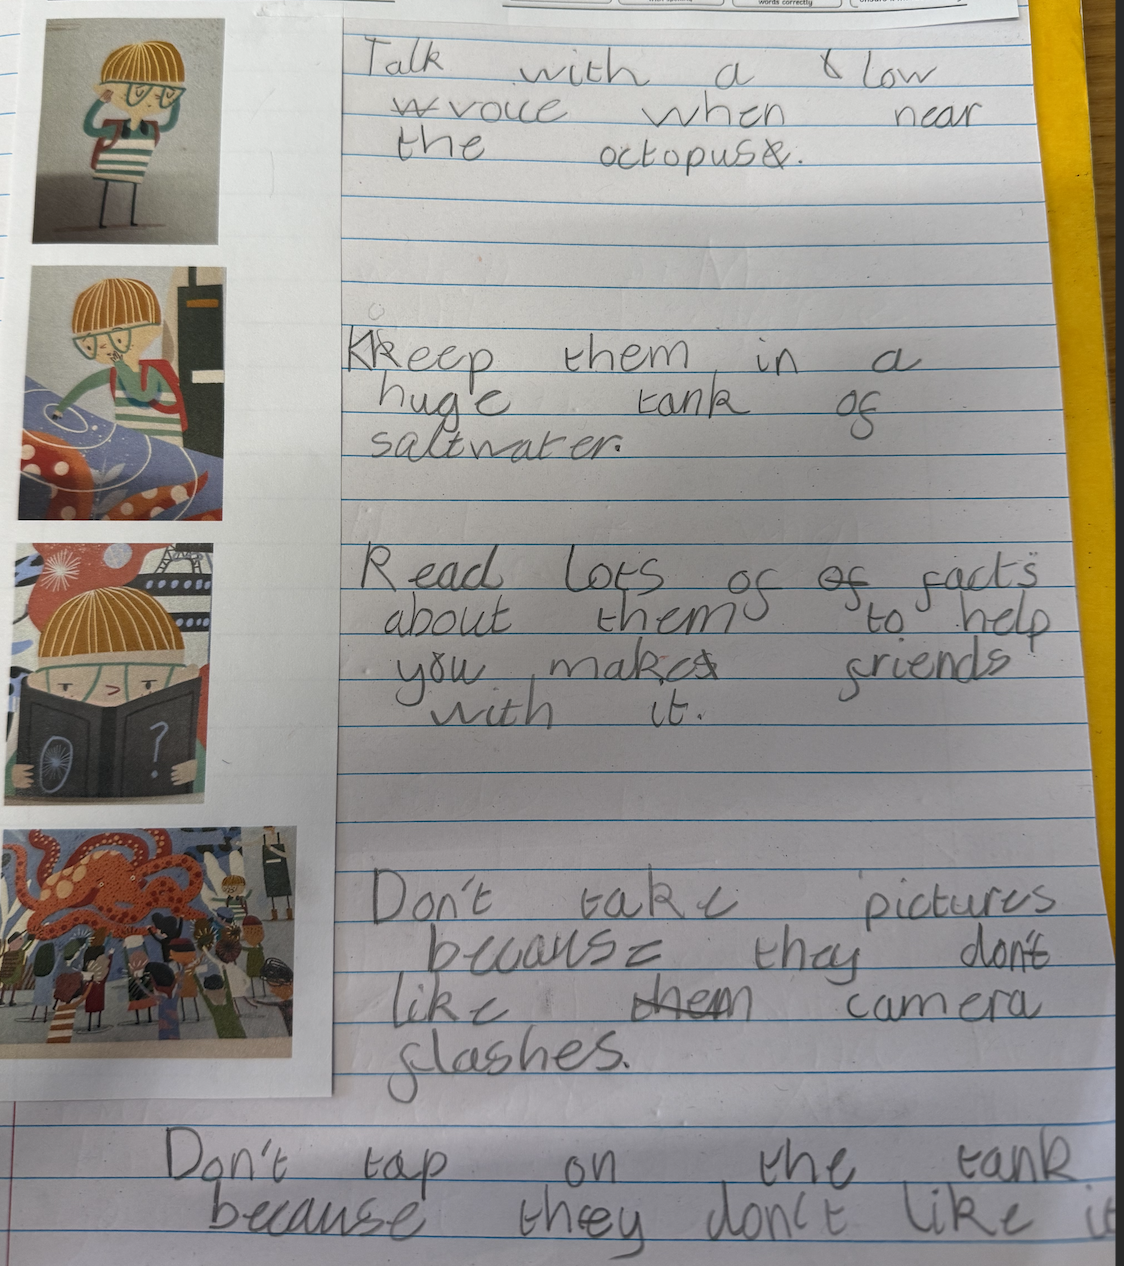 words correctly
Talk with a low
wvoice when near
the octopus.
Kkeep them in a
huge tank of
saltwater.
Read lots of of facts
about them to help
you make friends
with it.
?
Don't take pictures
because they don't
like them camera
flashes.
Don't tap on the tank
because they don't like it